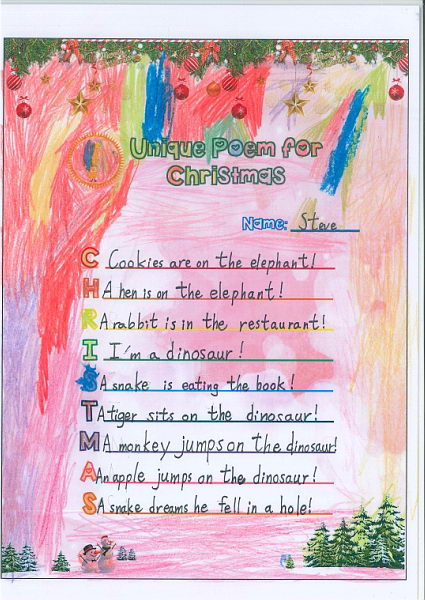 Unique Poem for
Christmas
Name: Steve
C Cookies are on the elephant!
H A hen is on the elephant!
R A rabbit is in the restaurant!
I I'm a dinosaur!
S A snake is eating the book!
T A tiger sits on the dinosaur!
M A monkey jumps on the dinosaur!
A An apple jumps on the dinosaur!
S A snake dreams he fell in a hole!